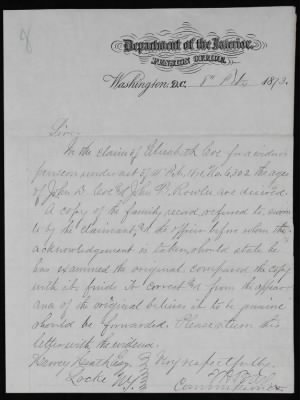 8
Department of the Interior,
PENSION OFFICE,
Washington, D.C. 8" 1873.
Sir:
In the claim of Elizabeth for a widow's
pension under act of No. 6302 the age
of John D. & John Rowlee are desired.
A copy of the family record, referred to, sworn
to by the claimant, & the officer before whom the
acknowledgement is taken, should state he
has examined the original, compared the copy
with it, finds it correct & from the appear
ance of the original believes it to be genuine
should be forwarded. Please return this
letter with the evidence.
Harvey Heath Esq. Very respectfully,
Locke N.Y.
Commissioner